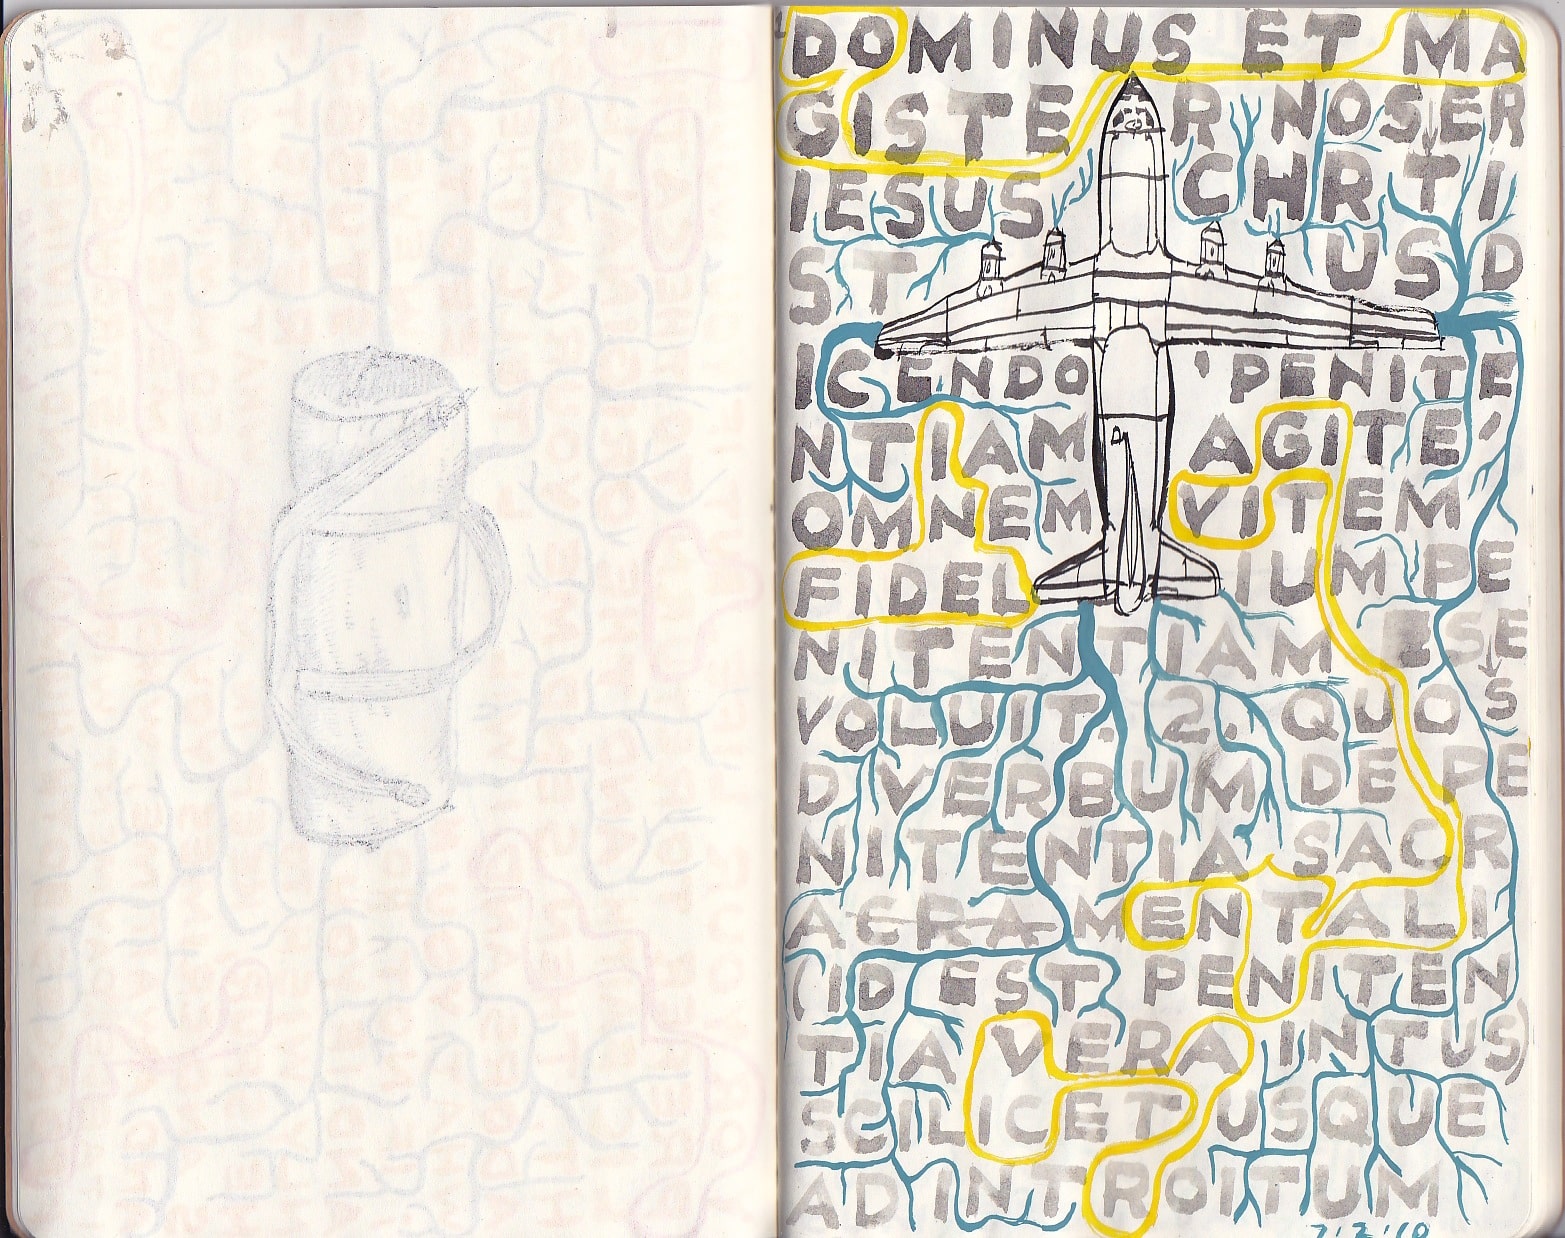 DOMINUS ET MA
GISTER NOSER
IESUS CHRTI
ST USD
ICENDO 'PENITE
NTIAM AGITE'
OMNEM VITEM
FIDELIUM PE
NITENTIAM ESE
VOLUIT. 2. QUOS
D VERBUM DE PE
NITENTIA SACR
ACRAMENTALI
(ID EST PENITEN
TIA VERA INTUS)
SCILICET USQUE
AD INTROITUM
7.2.10